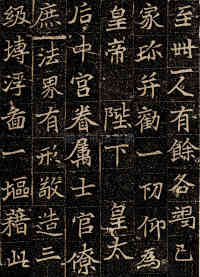 至卅人有餘各竭己
家珍并勸一切仰為
皇帝陛下皇太
后中官眷属士官僚
庶法界有形敬造三
級塼浮啚一塸藉此